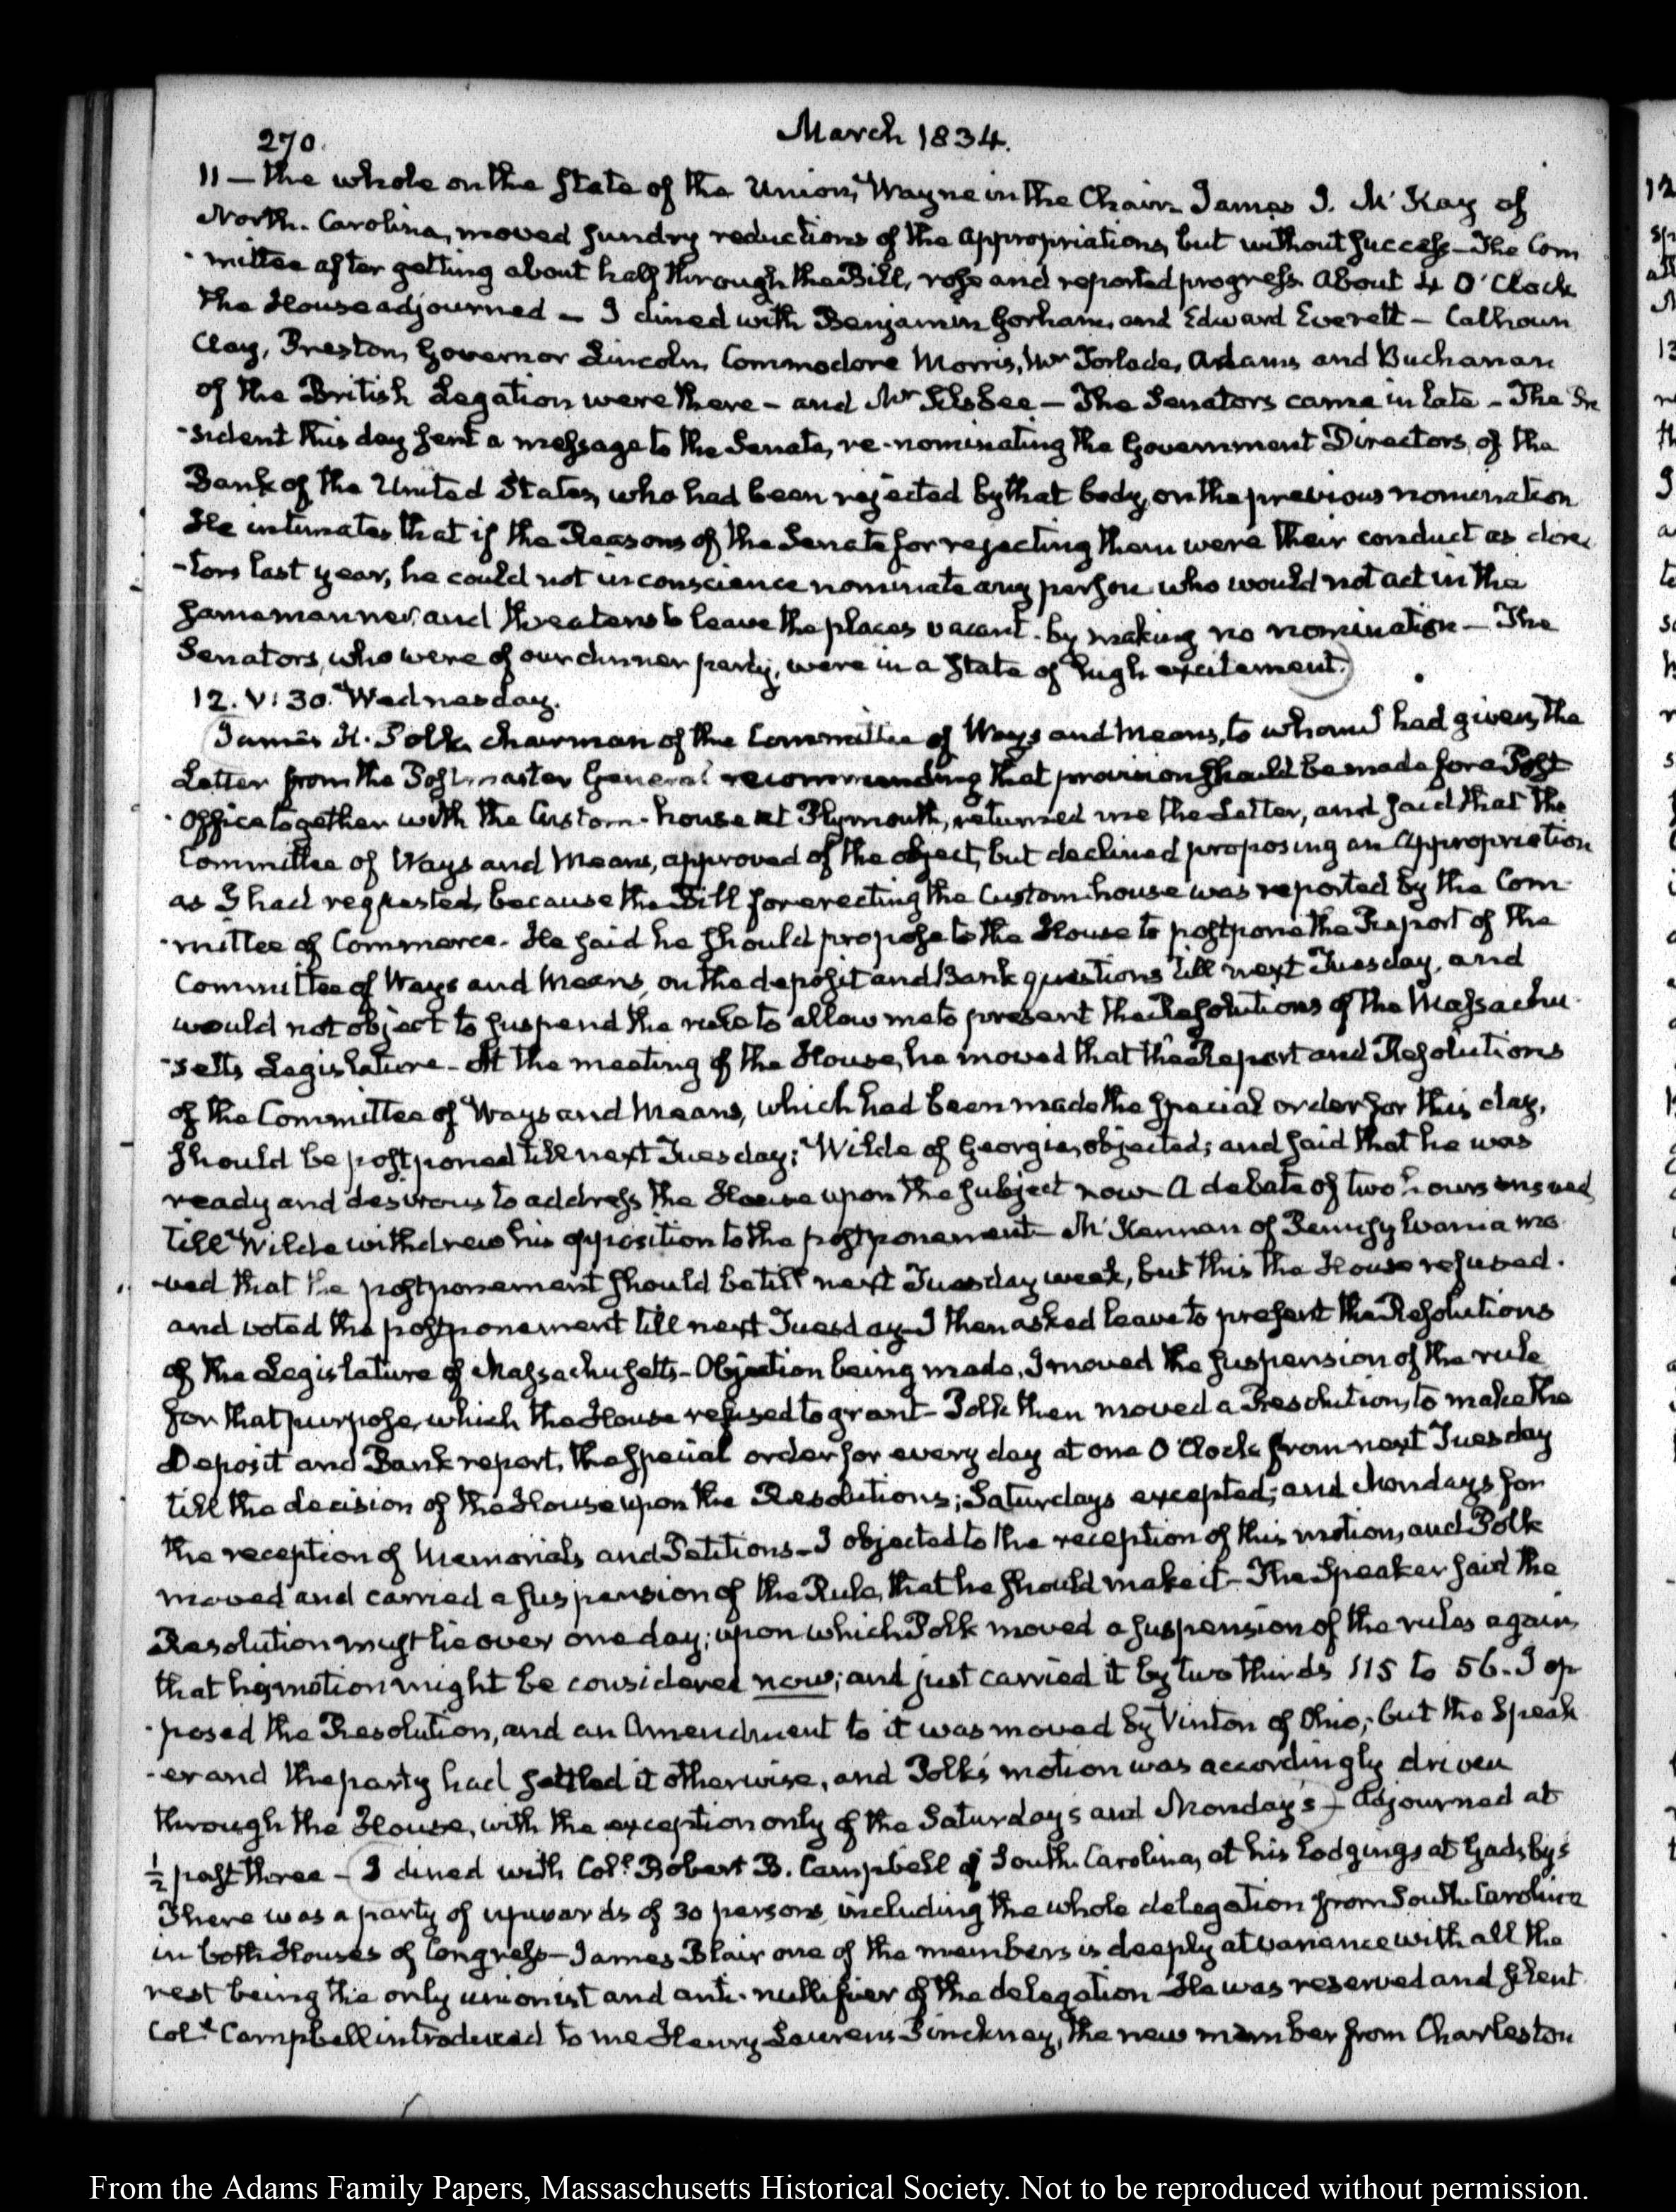 270.
March 1834.
11 — the whole on the State of the Union, Wayne in the Chair. James I. McKay of
North-Carolina, moved sundry reductions of the Appropriations, but without success — The Com
-mittee after getting about half through the Bill, rose and reported progress. About 4 O'Clock
the House adjourned — I dined with Benjamin Gorham, and Edward Everett — Calhoun
Clay, Preston, Governor Lincoln, Commodore Morris, Mr Torlade, Adams and Buchanan
of the British Legation were there — and Mr Silsbee — The Senators came in late — The Pre
-sident this day sent a message to the Senate, re-nominating the Government Directors, of the
Bank of the United States, who had been rejected by that body, on the previous nomination
He intimates that if the Reasons of the Senate for rejecting them were their conduct as direc
-tors last year, he could not in conscience nominate any person who would not act in the
same manner, and threatens to leave the places vacant by making no nomination — The
Senators, who were of our dinner party, were in a State of high excitement.
12. V:30. Wednesday.
James K. Polk, chairman of the Committee of Ways and Means, to whom I had given, the
Letter from the Postmaster General recommending that provision should be made for a Post
Office together with the Custom-house at Plymouth, returned me the Letter, and said that the
Committee of Ways and Means, approved of the object, but declined proposing an Appropriation
as I had requested, because the Bill for erecting the Custom house was reported by the Com-
-mittee of Commerce. He said he should propose to the House to postpone the Report of the
Committee of Ways and Means, on the deposit and Bank questions till next Tuesday, and
would not object to suspend the rule to allow me to present the Resolutions of the Massachu-
-setts Legislature — At the meeting of the House, he moved that the Report and Resolutions
of the Committee of Ways and Means, which had been made the special order for this day,
should be postponed till next Tuesday; Wilde of Georgia, objected; and said that he was
ready and desirous to address the House upon the subject now. A debate of two hours ensued
till Wilde withdrew his opposition to the postponement — McKennan of Pennsylvania mo-
-ved that the postponement should be till next Tuesday week, but this the House refused.
and voted the postponement till next Tuesday — I then asked leave to present the Resolutions
of the Legislature of Massachusetts — Objection being made, I moved the suspension of the rule
for that purpose, which the House refused to grant — Polk then moved a Resolution, to make the
Deposit and Bank report, the special order for every day at one O'Clock from next Tuesday
till the decision of the House upon the Resolutions; Saturdays excepted; and Mondays for
the reception of Memorials and Petitions — I objected to the reception of this motion, and Polk
moved and carried a suspension of the Rule, that he should make it — The Speaker said the
Resolution must lie over one day; upon which Polk moved a suspension of the rules again,
that his motion might be considered now; and just carried it by two thirds 115 to 56. I op
-posed the Resolution, and an Amendment to it was moved by Vinton of Ohio; but the Speak
-er and the party had settled it otherwise, and Polk's motion was accordingly driven
through the House, with the exception only of the Saturday's and Monday's — Adjourned at
½ past three — I dined with Coll. Robert B. Campbell of South-Carolina, at his lodgings at Gadsby's
There was a party of upwards of 30 persons, including the whole delegation from South Carolina
in both Houses of Congress — James Blair one of the members is deeply at variance with all the
rest being the only unionist and anti-nullifier of the delegation — He was reserved and silent
Coll. Campbell introduced to me Henry Laurens Pinckney, the new member from Charleston
From the Adams Family Papers, Massachusetts Historical Society. Not to be reproduced without permission.